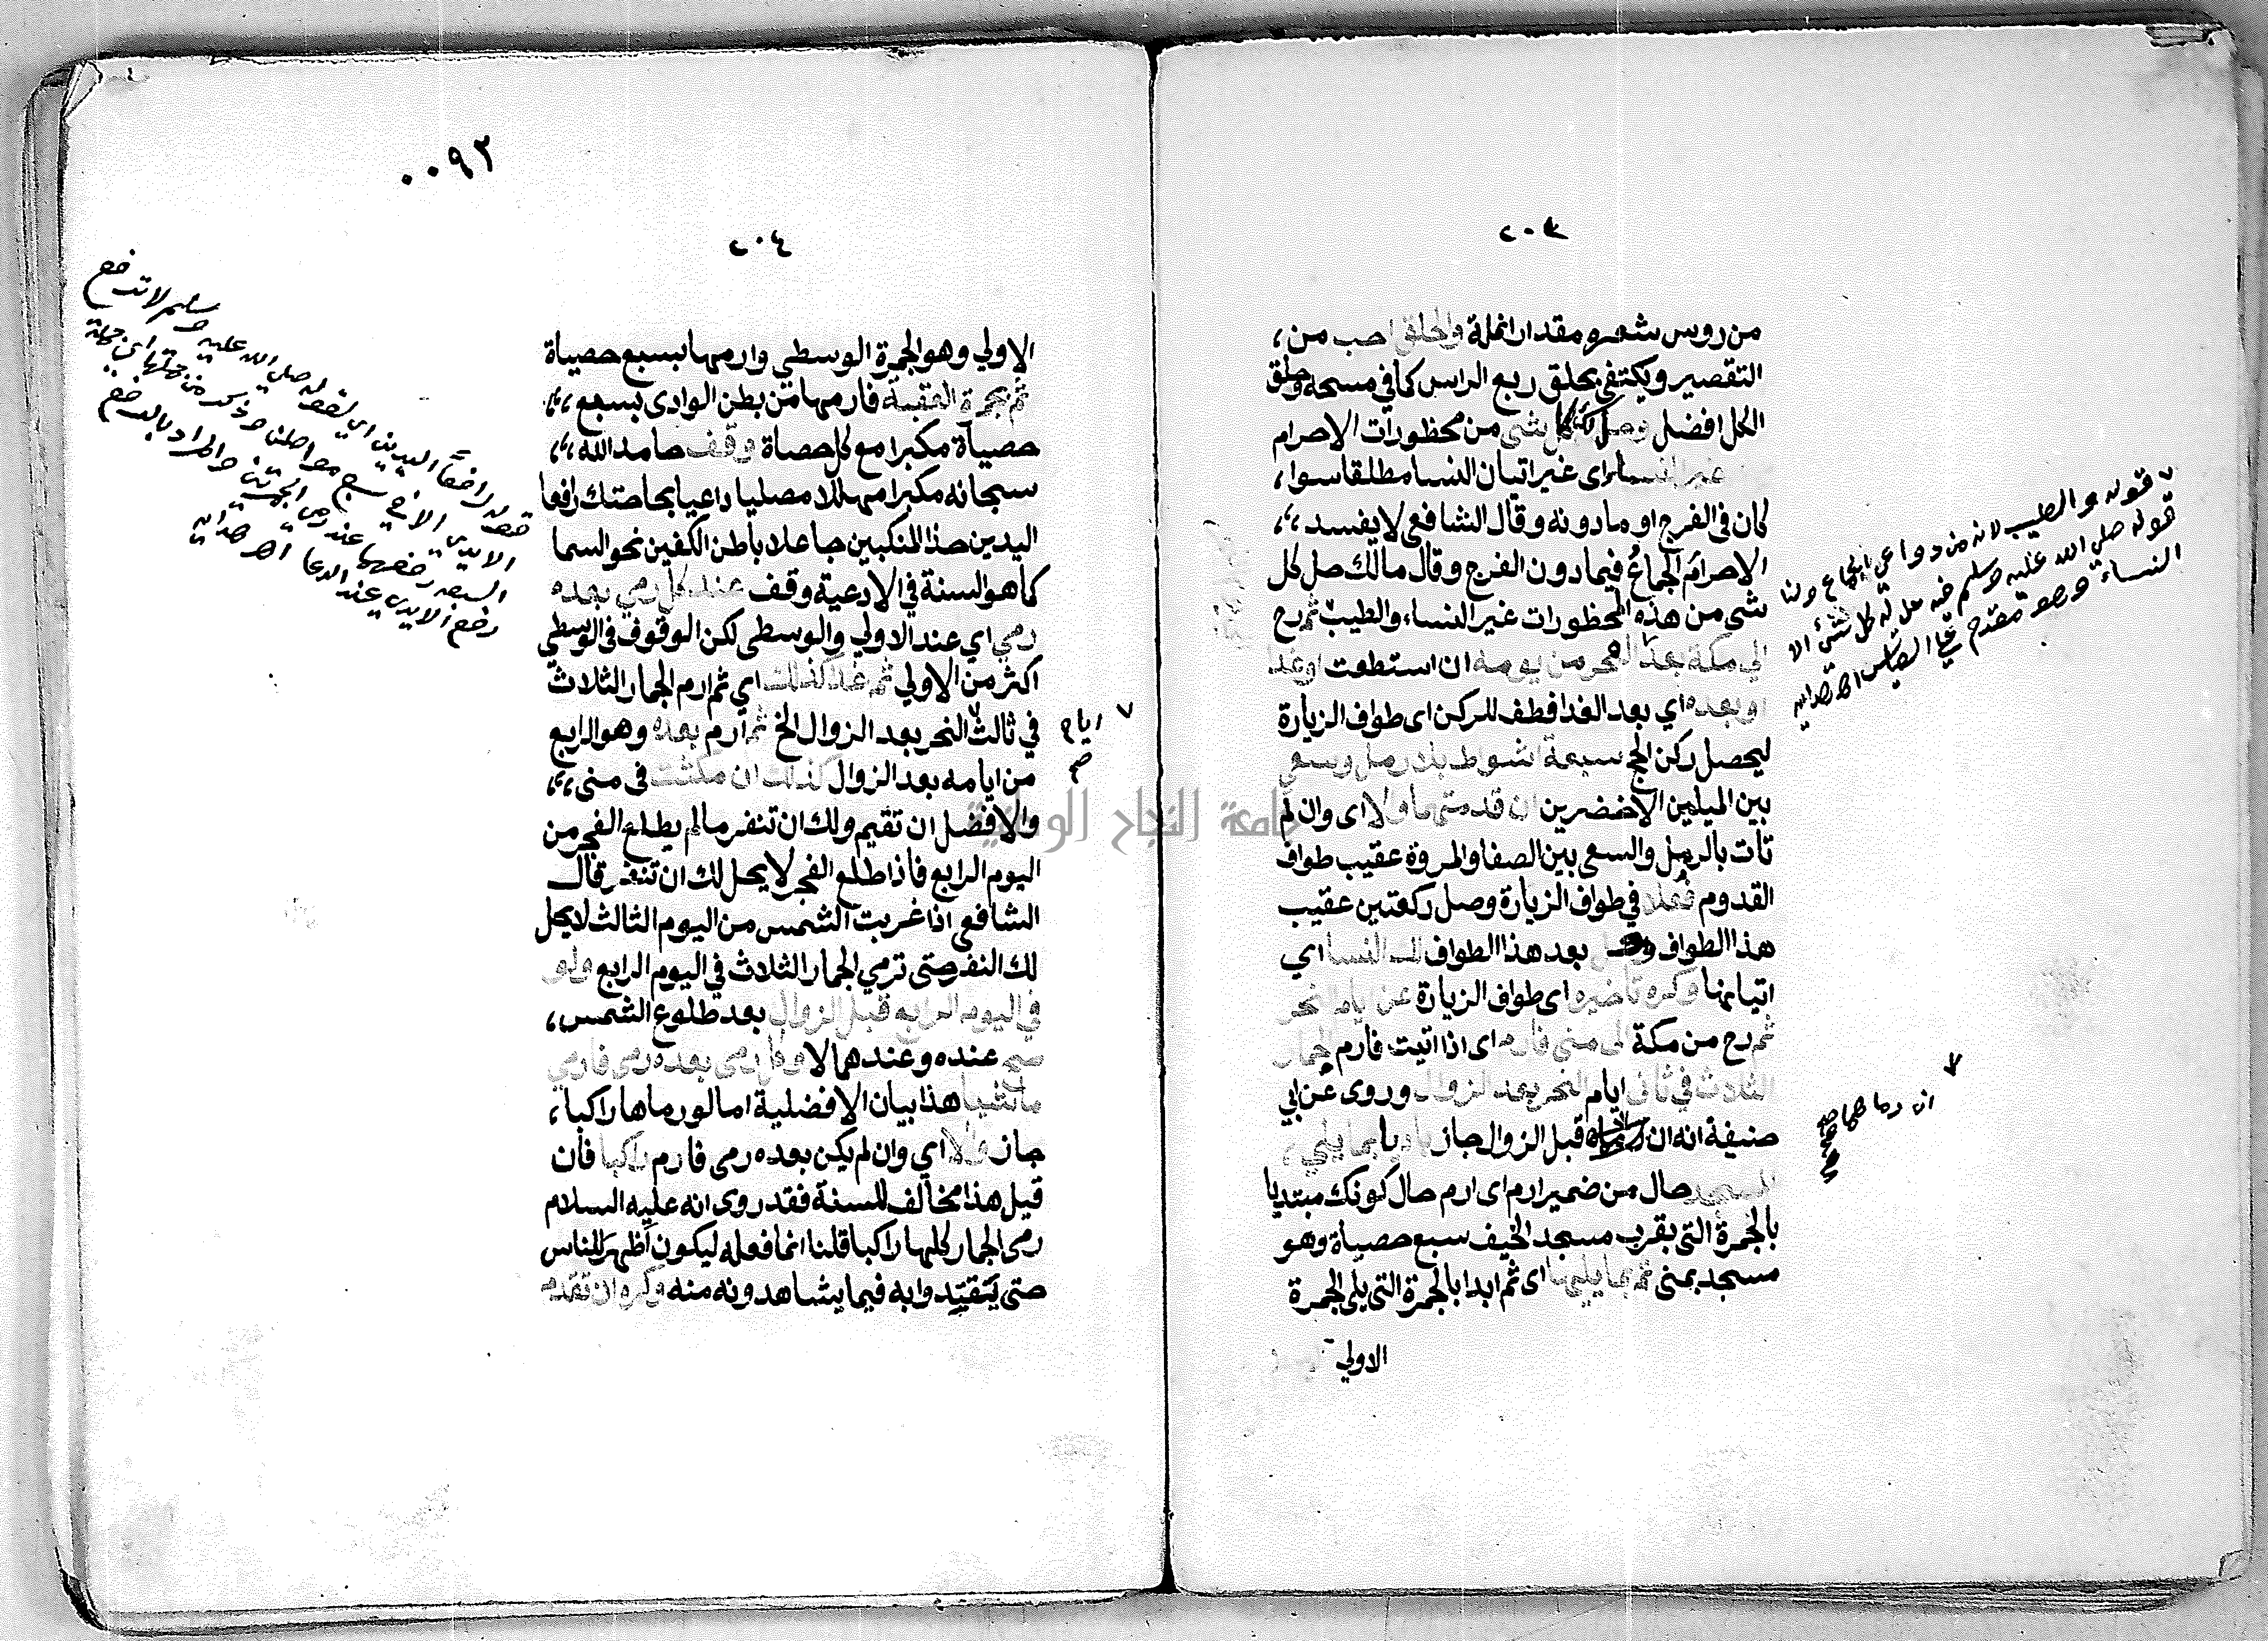 ٢٠٣
من روس شعره مقدار انملة والحلق احب من،
التقصير ويكتفى بحلق ربع الراس كما في مسحه وحلق
الكل افضل وحل لك كل شى من محظورات الاحرام
غير النساء اى غير اتيان النسا مطلقا سوا،
كان فى الفرج او ما دونه وقال الشافعى لا يفسد،
الاحرام الجماع فيما دون الفرج وقال مالك حل كل
شى من هذه المحظورات غير النساء والطيب ثم رح
الي مكة بعد الفجر من يومه ان استطعت او غدا
او بعده اي بعد الغدا فطف للركن اى طواف الزيارة
ليحصل ركن الحج سبعة اشواط بلا رمل وسعي
بين الميلين الاخضرين ان قدمتهما والا اى وان لم
تات بالرمل والسعى بين الصفا والمروة عقيب طواف
القدوم فعلا في طواف الزيارة وصل ركعتين عقيب
هذا الطواف وحل بعد هذا الطواف لك النسا اي
اتيانها وكره تاخيره اى طواف الزيارة عن ايام النحر
ثم رح من مكة الى منى فارم اى اذا اتيت فارم الجمار
الثلاث في ثانى ايام النحر بعد الزوال وروى عن ابي
حنيفة انه ان قبل الزوال جاز باديا بما يلي،
المسجد حال من ضمير ارم اى ارم حال كونك مبتديا
بالجمرة التى بقرب مسجد الخيف سبع حصياة وهو
مسجد بمنى ثم بما يليها اى ثم ابدا بالجمرة التى يلى الجمرة
الاولي
قوله والطيب لانه من دواعي الجماع ولنا
قوله صلي الله عليه وسلم فيه حل له كل شئ الا
النساء وهو مقدم علي القياس اهـ هدايه
٧ ان رماهما صح
٠٠٩٢
٢٠٤
الاولي وهو الجمرة الوسطي وارمها بسبع حصياة
ثم بجمرة العقبة فارمها من بطن الوادى بسبع،
حصياة مكبرا مع كل حصاة وقف حامد الله،
سبحانه مكبرا مهللا مصليا داعيا بحاجتك رافعا
اليدين حذا المنكبين جاعلا باطن الكفين نحو السما
كما هو السنة في الادعية وقف عند كل رمي بعده
رمي اي عند الاولي والوسطى لكن الوقوف فى الوسطي
اكثر من الاولي ثم غدا كذلك اي ثم ارم الجمار الثلاث
في ثالث النحر بعد الزوال الخ ثم ارم بعده وهو الرابع
من ايامه بعد الزوال كذلك ان مكثت فى منى،
والافضل ان تقيم ولك ان تنفر ما لم يطلع الفجر من
اليوم الرابع فاذا طلع الفجر لا يحل لك ان تنفر قال
الشافعى اذا غربت الشمس من اليوم الثالث لا يحل
لك النفر حتى ترمي الجمار الثلاث في اليوم الرابع ولو
في اليوم الرابع قبل الزوال بعد طلوع الشمس،
صح عنده وعندهما لا وكل رمى بعده رمى فارمى
ماشيا هذا بيان الافضلية اما لو رماها راكبا،
جاز والا اي وان لم يكن بعده رمى فارم راكبا فان
قيل هذا مخالف للسنة فقد روى انه عليه السلام
رمى الجمار كلها راكبا قلنا انما فعله ليكون اظهر للناس
حتى يقتدوا به فيما يشاهدونه منه وكره ان تقدم
٧ ايام
صح
قوله رافعا اليدين اي لقوله صلي الله عليه وسلم لا ترفع
الايدي الا في سبع مواطن وذكر من جملتها اي جملة
السبعه رفعهما عند رمي الجمرتين والمراد بالرفع
رفع الايدي عند الدعا اهـ هدايه
جامعة النجاح الوطنية